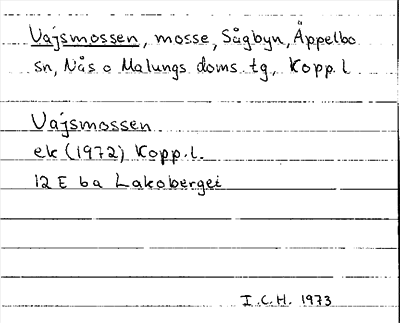 Vajsmossen, mosse, Sågbyn, Äppelbo
sn, Nås o Malungs doms. tg, Kopp. l
Vajsmossen
ek (1972) Kopp. l.
12 E 6a Lakoberget
I.C.H. 1973